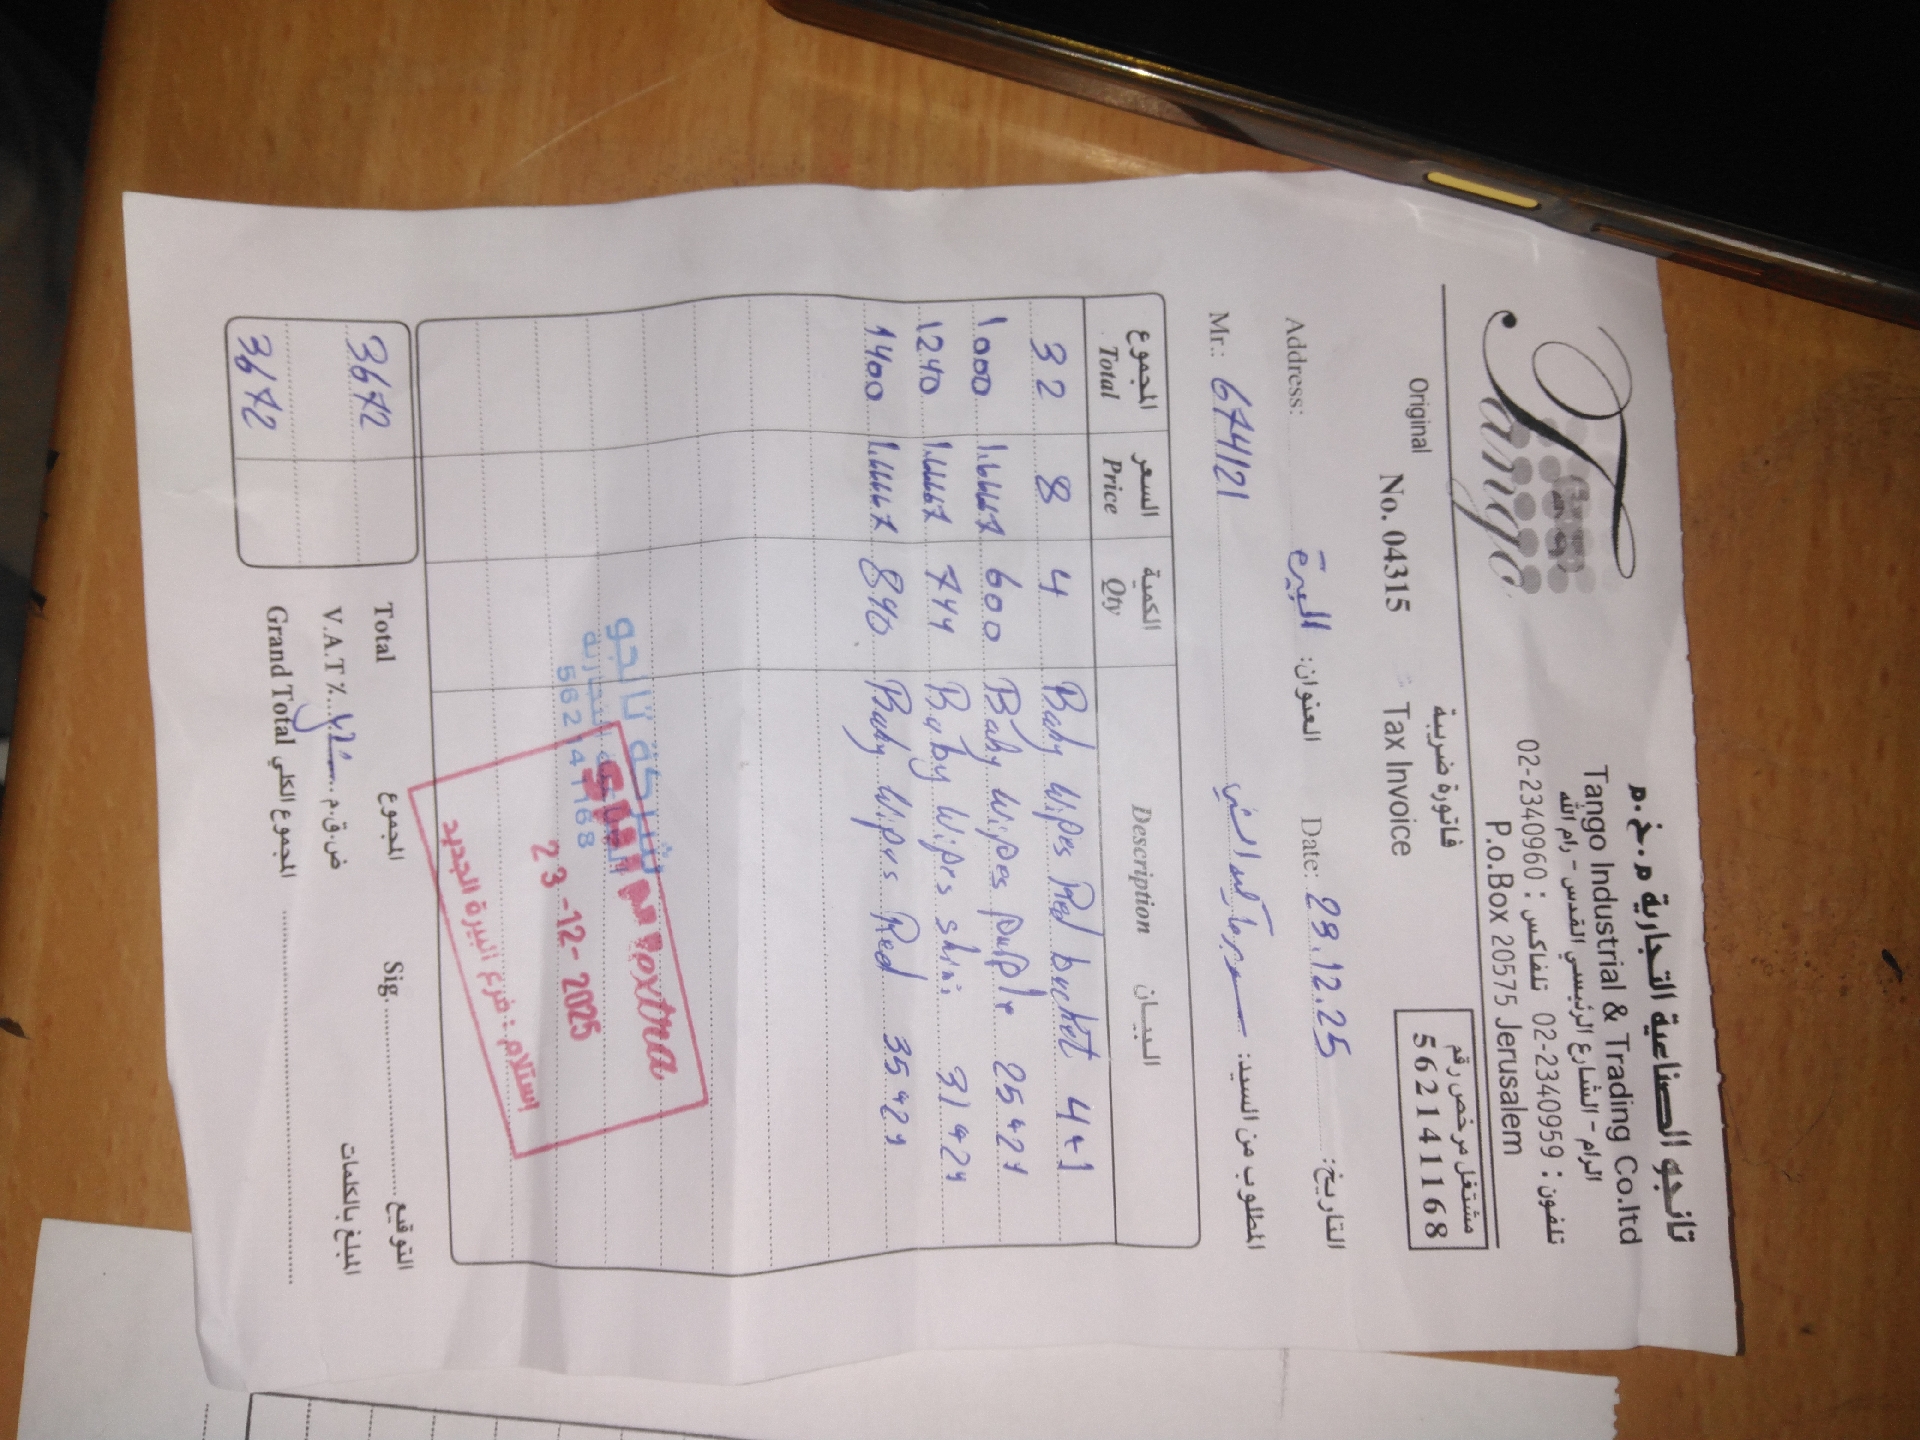 Tango
تانجو الصناعية التجارية م.خ.م
Tango Industrial & Trading Co.ltd
الرام - الشارع الرئيسي القدس - رام الله
تلفون : 02-2340959 تلفاكس : 02-2340960
P.o.Box 20575 Jerusalem
فاتورة ضريبية
مشتغل مرخص رقم
562141168
Original No. 04315 Tax Invoice
Address: البيرة العنوان: Date: 23.12.25 التاريخ:
Mr.: 674121 المطلوب من السيد:
المجموع السعر الكمية البيـــان
Total Price Qty Description
32 8 4 Baby Wipes Red bucket 4+1
1000 1.6667 600 Baby Wipes purple 25*24
1240 1.6667 744 Baby Wipes shini 31*24
1400 1.6667 840 Baby Wipes Red 35*24
شركة تانجو
562141168
extra
23-12-2025
إستلام : فرع البيرة الجديد
3672 Total المجموع Sig. التوقيع
V.A.T٪ ض.ق.م المبلغ بالكلمات
3672 Grand Total المجموع الكلي